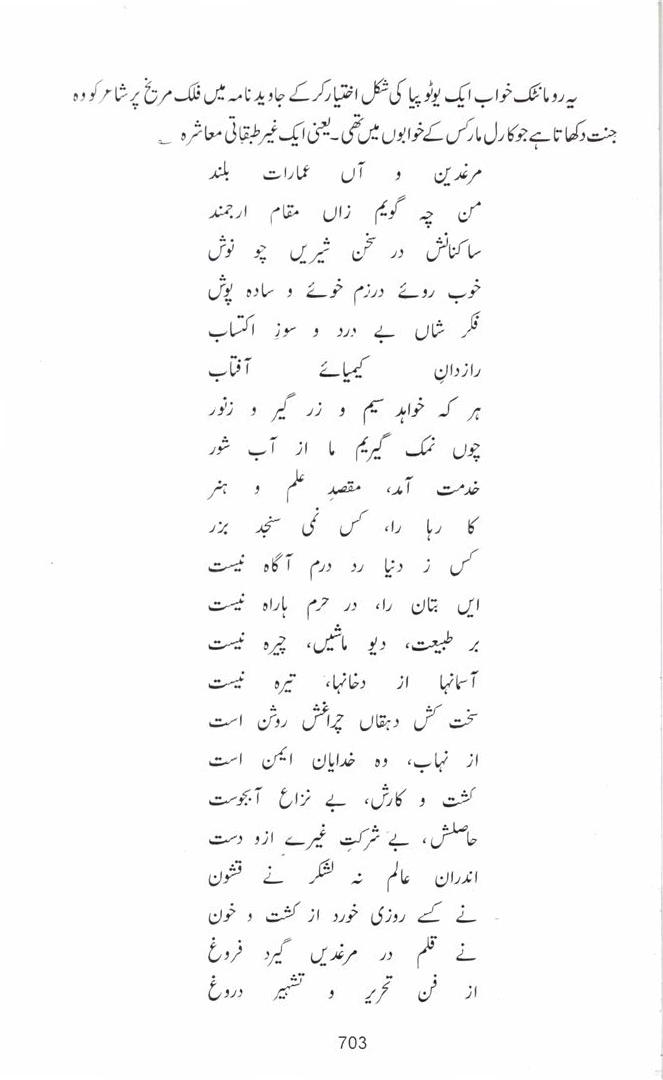 یہ رومانٹک خواب ایک یوٹوپیا کی شکل اختیار کر کے جاوید نامہ میں فلک مریخ پر شاعر کو وہ
جنت دکھاتا ہے جو کارل مارکس کے خوابوں میں تھی۔ یعنی ایک غیر طبقاتی معاشرہ ؎
مرغدین و آں عمارات بلند
من چہ گویم زاں مقام ارجمند
ساکنانش در سخن شیریں چو نوش
خوب روئے درزم خوئے و سادہ پوش
فکر شاں بے درد و سوزِ اکتساب
رازدانِ کیمیائے آفتاب
ہر کہ خواہد سیم و زر گیر و زنور
چوں نمک گیریم ما از آب شور
خدمت آمد، مقصدِ علم و ہنر
کا رہا را، کس نمی سنجد بزر
کس ز دنیا رد درم آگاہ نیست
ایں بتان را، در حرم ہاراہ نیست
بر طبیعت، دیو ماشیں، چیرہ نیست
آسمانہا از دخانہا، تیرہ نیست
سخت کش دہقاں چراغش روشن است
از نہاب، دہ خدایان ایمن است
کشت و کارش، بے نزاع آبجوست
حاصلش، بے شرکتِ غیرے ازو دست
اندران عالم نہ لشکر نے قشون
نے کسے روزی خورد از کشت و خون
نے قلم در مرغدیں گیرد فروغ
از فن تحریر و تشہیر دروغ
703